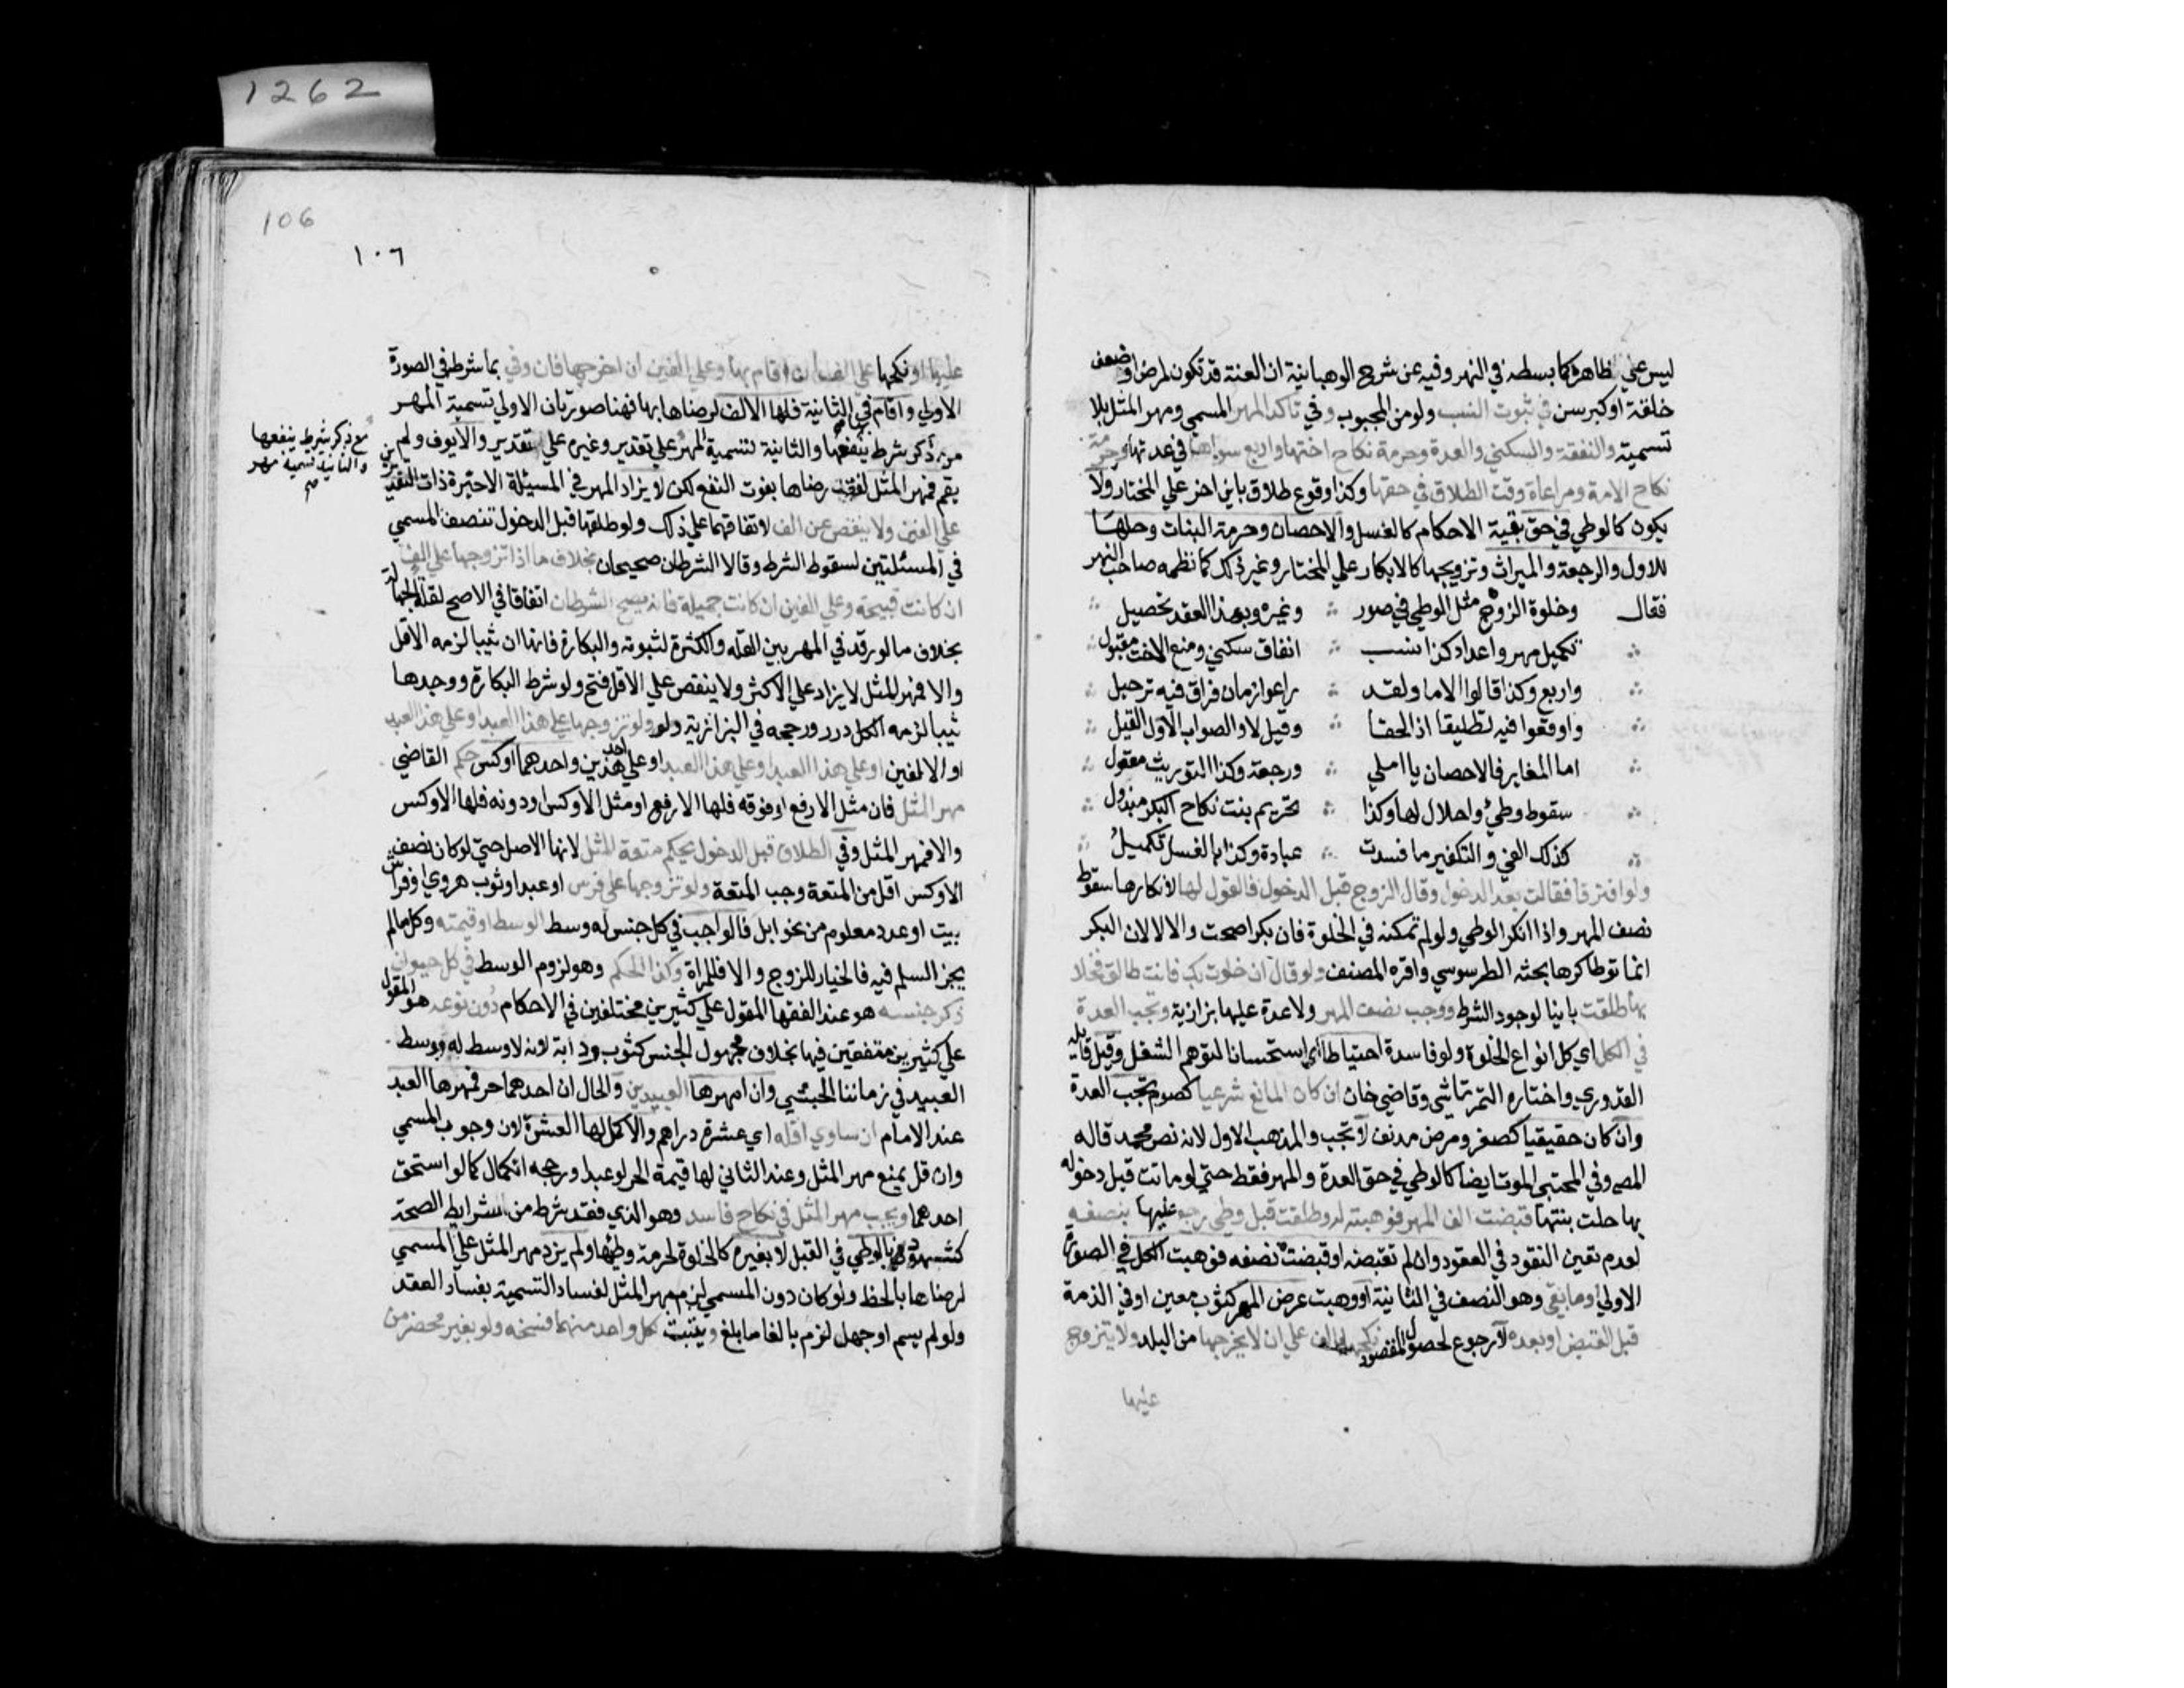 ليس علي ظاهره كما بسطه في النهر وفيه عن شرح الوهبانية ان العنة قد تكون لمرض او ضعف
خلقة او كبر سن في ثبوت النسب ولو من المجبوب وفي تاكد المهر المسمي ومهر المثل بلا
تسمية والنفقة والسكني والعدة وحرمة نكاح اختها واربع سواها في عدتها وحرمة
نكاح الامة ومراعاة وقت الطلاق في حقها وكذا وقوع طلاق باين اخر علي المختار ولا
يكون كالوطي في حق بقية الاحكام كالغسل والاحصان وحرمة البنات وحلها
للاول والرجعة والميراث وتزويجها كالابكار علي المختار وغير ذلك كما نظمه صاحب النهر
فقال وخلوة الزوج مثل الوطي في صور وغيره وبهذا العقد تحصيل
تكميل مهر واعداد كذا نسب انفاق سكني ومنع الاخت مقبول
واربع وكذا قالوا الاما ولقد راعوا زمان فراق فيه ترحيل
واوقعوا فيه تطليقا اذا لحقا وقيل لا والصواب الاول القيل
اما المغاير فالاحصان يا املي ورجعة وكذا التوريث معقول
سقوط وطئ واحلال لها وكذا تحريم بنت نكاح البكر مبذول
كذلك الفئ والتكفير ما فسدت عبادة وكذا بالغسل تكميل
ولو افترقا فقالت بعد الدخول وقال الزوج قبل الدخول فالقول لها لانكارها سقوط
نصف المهر واذا انكر الوطي ولو لم تمكنه في الخلوة فان بكرا صحت والا لا لان البكر
انما توطا كرها بحثه الطرسوسي واقره المصنف ولو قال ان خلوت بك فانت طالق فخلا
بها طلقت باينا لوجود الشرط ووجب نصف المهر ولا عدة عليها بزازية وتجب العدة
في الكل اي كل انواع الخلوة ولو فاسدة احتياطا اي استحسانا لتوهم الشغل وقيل قايله
القدوري واختاره التمرتاشي وقاضي خان ان كان المانع شرعيا كصوم تجب العدة
وان كان حقيقيا كصغر ومرض مدنف لا تجب والمذهب الاول لانه نص محمد قاله
المص وفي المجتبي الموت ايضا كالوطي في حق العدة والمهر فقط حتي لو ماتت قبل دخوله
بها حلت بنتها قبضت الف المهر فوهبته له وطلقت قبل وطي رجع عليها بنصفه
لعدم تعين النقود في العقود وان لم تقبضه او قبضت نصفه فوهبت الكل في الصورة
الاولي او ما بقي وهو النصف في الثانية او وهبت عرض المهر كثوب معين او في الذمة
قبل القبض او بعده لا رجوع لحصول المقصود نكحها بالف علي ان لا يخرجها من البلد ولا يتزوج
عليها
106
١٠٦
عليها او نكحها علي الف ان اقام بها وعلي الفين ان اخرجها فان وفي بما شرط في الصورة
الاولي واقام في الثانية فلها الالف لرضاها بها فهنا صورتان الاولي تسمية المهر
من ذكر شرط ينفعها والثانية تسمية المهر علي تقدير وغيره علي تقدير والا يوف ولم
يقم فمهر المثل لفوت رضاها بفوت النفع لكن لا يزاد المهر في المسيلة الاخيرة ذات التقديرين
علي الفين ولا ينقص عن الف لاتفاقهما علي ذلك ولو طلقها قبل الدخول تنصف المسمي
في المسئلتين لسقوط الشرط وقالا الشرطان صحيحان بخلاف ما اذا تزوجها علي الف
ان كانت قبيحة وعلي الفين ان كانت جميلة فانه يصح الشرطان اتفاقا في الاصح لقلة الجهالة
بخلاف ما لو ردد في المهر بين القلة والكثرة لثبوته والبكارة فانها ان ثيبا لزمه الاقل
والا فمهر المثل لا يزاد علي الاكثر ولا ينقص علي الاقل فتح ولو شرط البكارة ووجدها
ثيبا لزمه الكل درر ورجحه في البزازية ولو ولو تزوجها علي هذا العبد او علي هذا العبد
او الالفين او علي هذا العبد او علي هذا العبد او علي احد هذين واحدهما اوكس حكم القاضي
مهر المثل فان مثل الارفع او فوقه فلها الارفع او مثل الاوكس او دونه فلها الاوكس
والا فمهر المثل وفي الطلاق قبل الدخول يحكم متعة المثل لانها الاصل حتي لو كان نصف
الاوكس اقل من المتعة وجب المتعة ولو تزوجها علي فرس او عبد او ثوب هروي او فراش
بيت او عدد معلوم من نحو ابل فالواجب في كل جنس له وسط الوسط او قيمته وكل ما لم
يجز السلم فيه فالخيار للزوج والا فللمراة وكذا الحكم وهو لزوم الوسط في كل حيوان
ذكر جنسه هو عند الفقها المقول علي كثيرين مختلفين في الاحكام دون نوعه هو المقول
علي كثيرين متفقين فيها بخلاف مجهول الجنس كثوب ودابة لانه لا وسط له ووسط
العبيد في زماننا الحبشي وان امهرها العبدين والحال ان احدهما حر فمهرها العبد
عند الامام ان ساوي اقله اي عشرة دراهم والا كمل لها العشرة لان وجوب المسمي
وان قل يمنع مهر المثل وعند الثاني لها قيمة الحر لو عبدا ورجحه الكمال كما لو استحق
احدهما ويجب مهر المثل في نكاح فاسد وهو الذي فقد شرط من شرايط الصحة
كشهود بالوطي في القبل لا بغيره كالخلوة لحرمة وطئها ولم يزد مهر المثل علي المسمي
لرضاها بالحظ ولو كان دون المسمي لزم مهر المثل لفساد التسمية بفساد العقد
ولو لم يسم او جهل لزم بالغا ما بلغ ويثبت لكل واحد منهما فسخه ولو بغير محضر من
مع ذكر شرط ينفعها
والثانية تسمية مهر
صح
1262